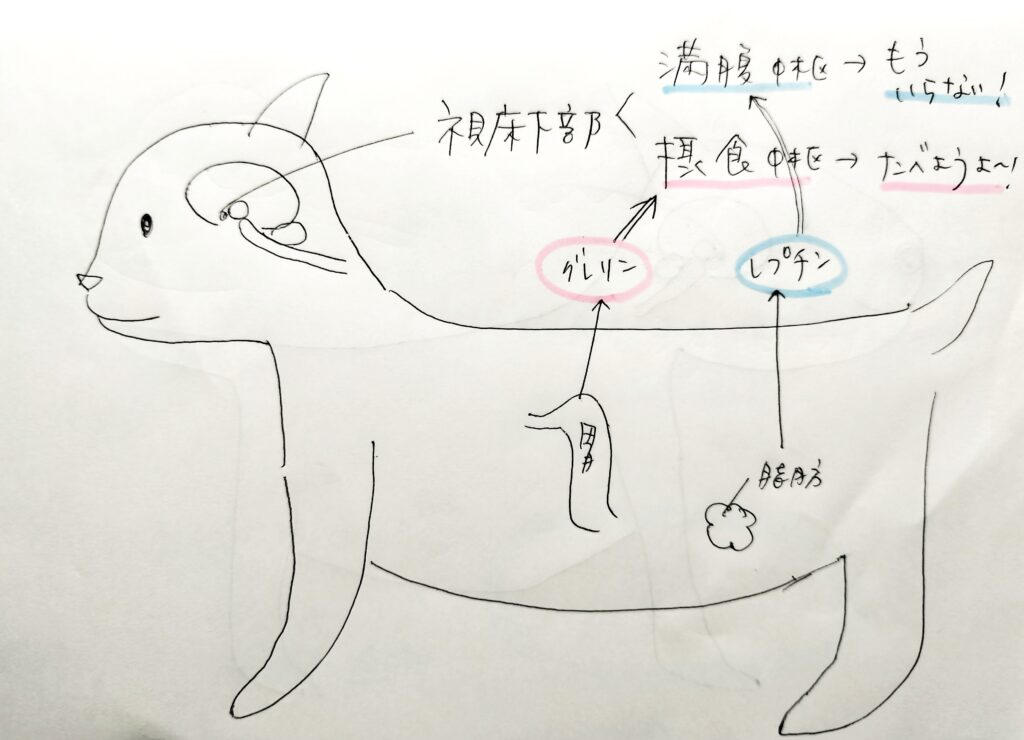 満腹中枢→もう
いらない！
視床下部く
摂食中枢→たべようよ〜！
グレリン
レプチン
胃
脂肪